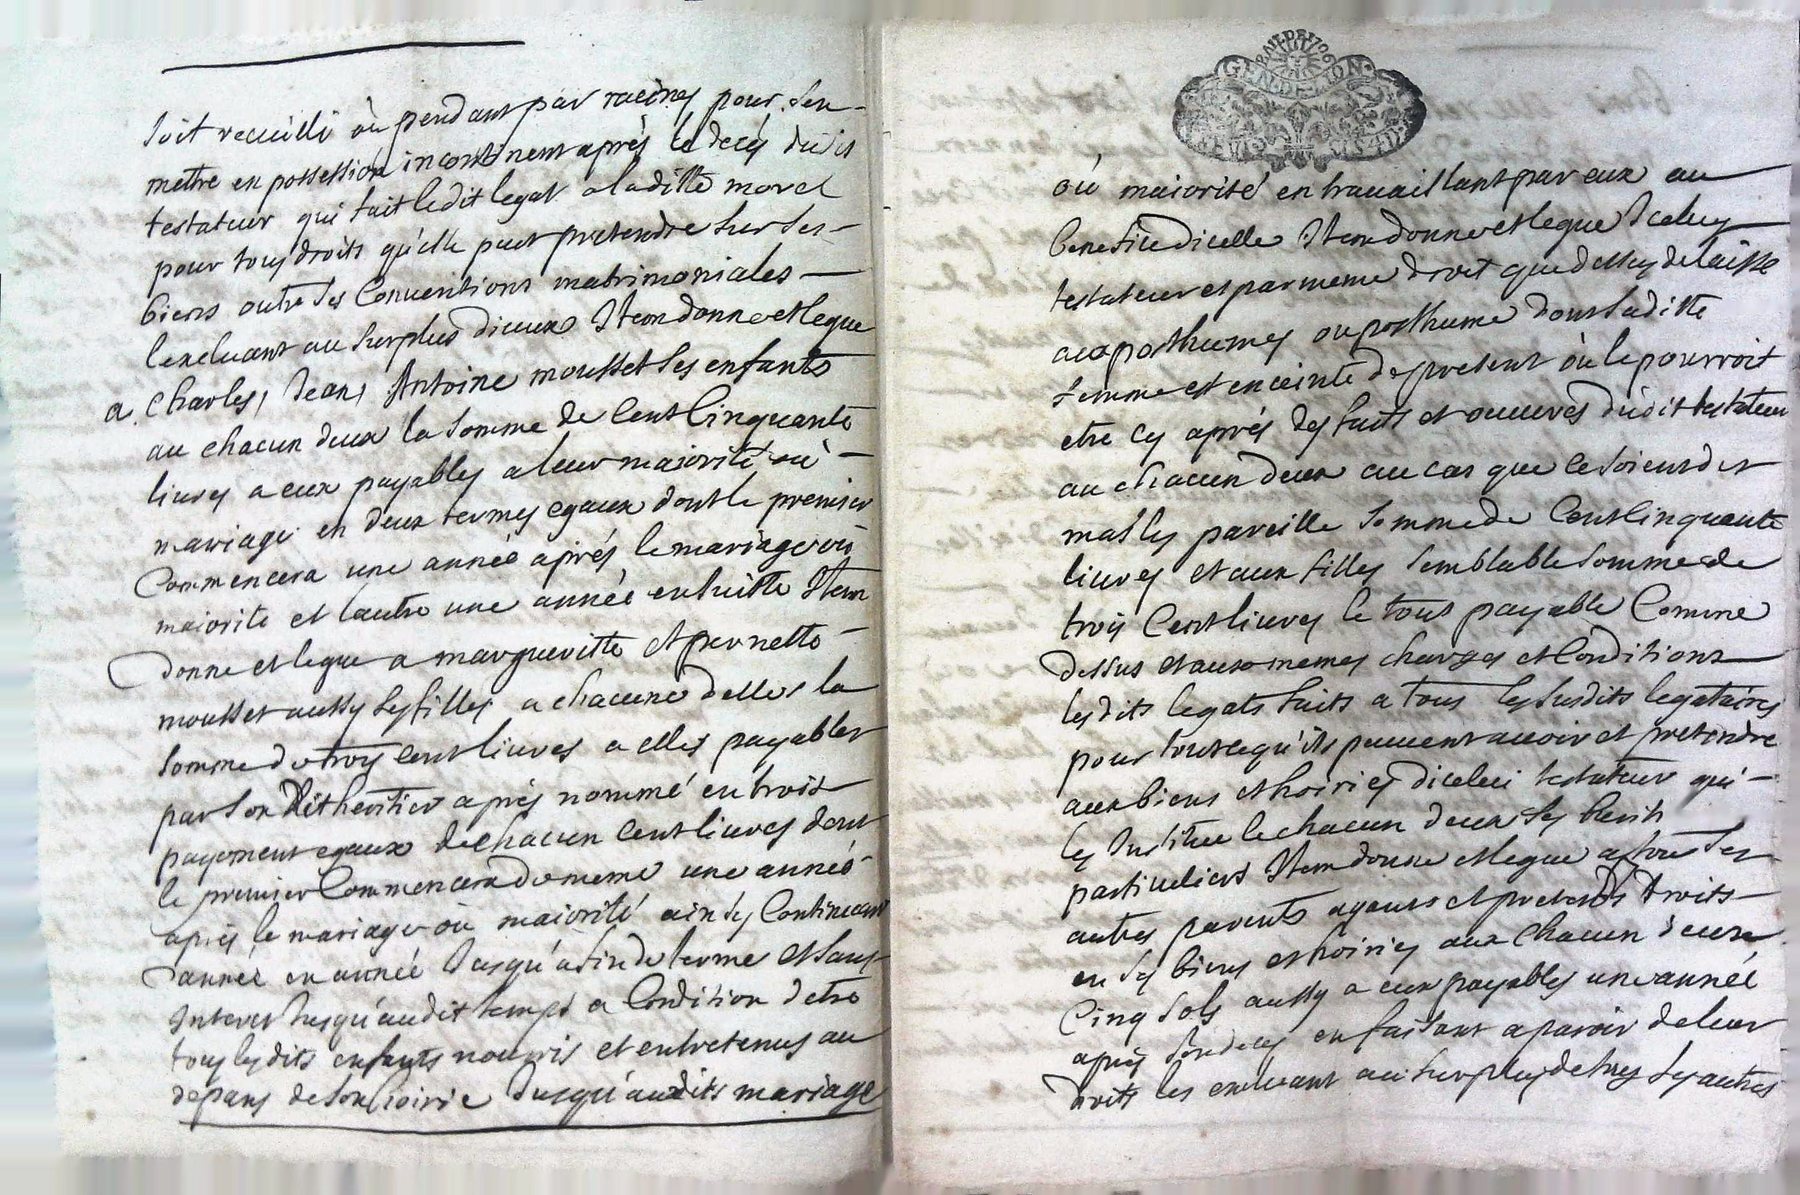 soit recuilli où pendant par racines pour sen
mettre en possession incontinent aprés le decés dudit
testateur qui fait ledit legat a laditte morel
pour tous droits qu'elle peut pretendre sur ses
biens outre ses Conventions matrimoniales
lexcluant au surplus diceux Item donne et legue
a Charles, Jean, Antoine mousset ses enfants
au chacun deux la somme de Cent Cinquante
livres a eux payables a leur majorité où
mariage en deux termes egaux dont le premier
Commencera une année aprés le mariage où
maiorité et lautre une année ensuitte Item
donne et legue a margueritte et pernette
mousset aussy ses filles a chacune delles la
somme de trois cent livres a elles payables
par son dit heritier aprés nommé en trois
payement egaux de chacun Cent livres dont
le premier Commencera de meme une année
aprés le mariage où maiorité ainsy Continuant
dannée en année Jusqu'a fin de terme et sans
Interest Jusqu'audit temps a Condition detre
tous lesdits enfants nourris et entretenus au
depans de son hoirie Jusqu'auxdits mariage
GEN DE LION
où maiorité en travaillant par eux au
benefice dicelle Item donne et legue Iceluy
testateur et par meme droit que dessus delaisse
aux posthumes ou posthume dont laditte
femme est enceinte de present où le pourroit
etre cy aprés des faits et oeuvres dudit testateur
au chacun deux au cas que ce soient des
masles pareille somme de Cent Cinquante
livres et aux filles semblable somme de
trois Cent livres le tout payable Comme
dessus et aux memes charges et Conditions
lesdits legats faits a tous les susdits legataires
pour tout ce qu'ils peuvent avoir et pretendre
aux biens et hoiries dicelui testateur qui
les Institue le chacun deux ses heritiers
particuliers Item donne et legue a tous ses
autres parents ayants et pretends droits
en ses biens et hoiries aux chacun deux
Cinq sols aussy a eux payables une année
aprés son deces en faisant aparoir de leur
droits les excluant au surplus de tous ses autres